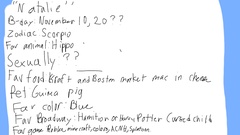 "Natalie"
B-day: November 10, 20??
Zodiac Scorpio
Fav animal: Hippo
Sexually: ??
Fav food Kraft and Boston market mac in cheese
Pet Guinea pig
Fav color: Blue
Fav Broadway: Hamilton or Harry Potter Cursed child
Fav game Roblox, minecraft, coloring, ACNH, Splatoon